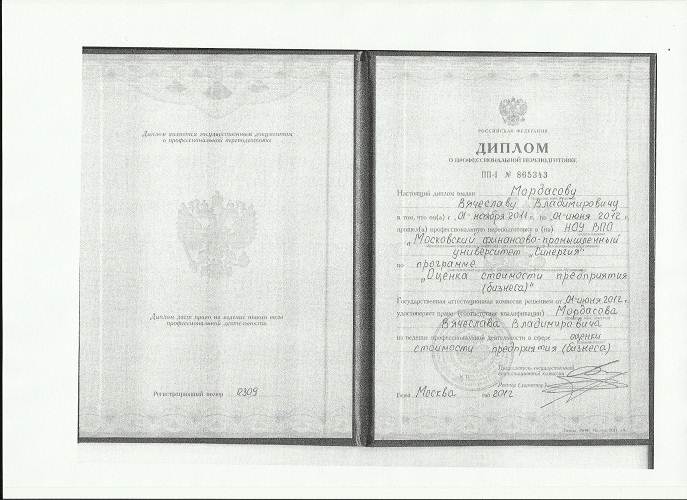 Диплом является государственным документом
о профессиональной переподготовке
Диплом дает право на ведение нового вида
профессиональной деятельности
Регистрационный номер 0309
РОССИЙСКАЯ ФЕДЕРАЦИЯ
ДИПЛОМ
О ПРОФЕССИОНАЛЬНОЙ ПЕРЕПОДГОТОВКЕ
ПП-I № 865343
Настоящий диплом выдан Мордасову
Вячеславу Владимировичу
в том, что он(а) с „01“ ноября 2011 г. по „01“ июня 2012 г.
прошел(а) профессиональную переподготовку в (на) НОУ ВПО
„Московский финансово-промышленный
университет „Синергия“
по программе
„Оценка стоимости предприятия
(бизнеса)“
Государственная аттестационная комиссия решением от „01“ июня 2012 г.
удостоверяет право (соответствие квалификации) Мордасова
Вячеслава Владимировича
на ведение профессиональной деятельности в сфере оценки
стоимости предприятия (бизнеса)
Председатель государственной
аттестационной комиссии
Ректор (директор)
Город Москва год 2012